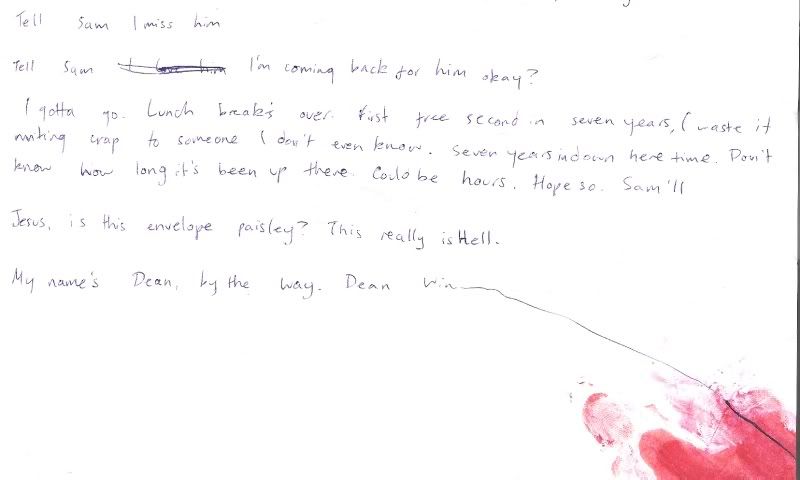 Tell Sam I miss him
Tell Sam I love him I'm coming back for him okay?
I gotta go. Lunch break's over. First free second in seven years, I waste it
writing crap to someone I don't even know. Seven years in down here time. Don't
know how long it's been up there. Could be hours. Hope so. Sam'll
Jesus, is this envelope paisley? This really is Hell.
My name's Dean, by the way. Dean Win